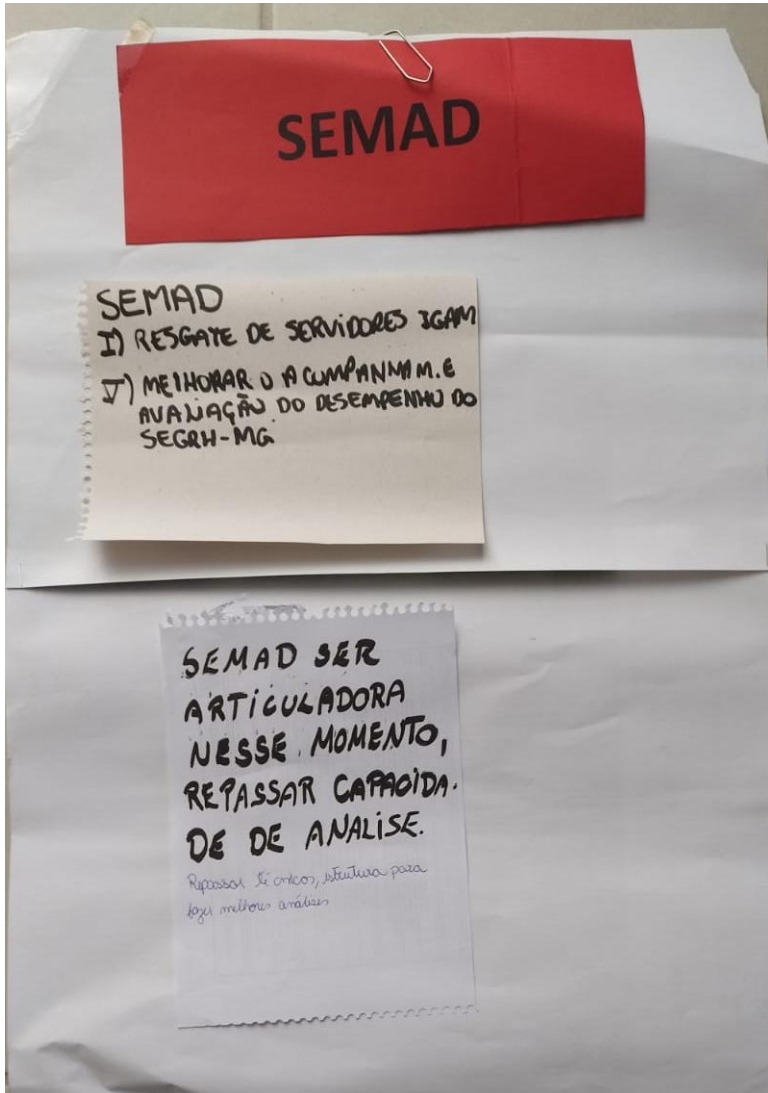 SEMAD
SEMAD
I) RESGATE DE SERVIDORES IGAM
V) MELHORAR O ACUMPANHAM. E
AVALIAÇÃO DO DESEMPENHO DO
SEGRH-MG
SEMAD SER
ARTICULADORA
NESSE MOMENTO,
REPASSAR CAPACIDA-
DE DE ANALISE.
Repassar técnicos, estrutura para
fazer melhores análises